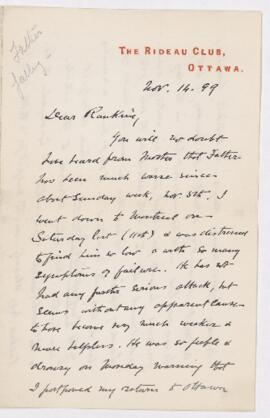 Father
failing –
THE RIDEAU CLUB,
OTTAWA.
Nov. 14. 99
Dear Rankine,
You will no doubt
have heard from Mother that Father
has been much worse since
about Sunday week, Nov. 5th. I
went down to Montreal on
Saturday last (11th) & was distressed
to find him so low & with so many
symptoms of failure. He has not
had any further serious attack, but
seems without any apparent cause
to have become very much weaker &
more helpless. He was so feeble &
drowsy on Monday morning that
I postponed my return to Ottawa